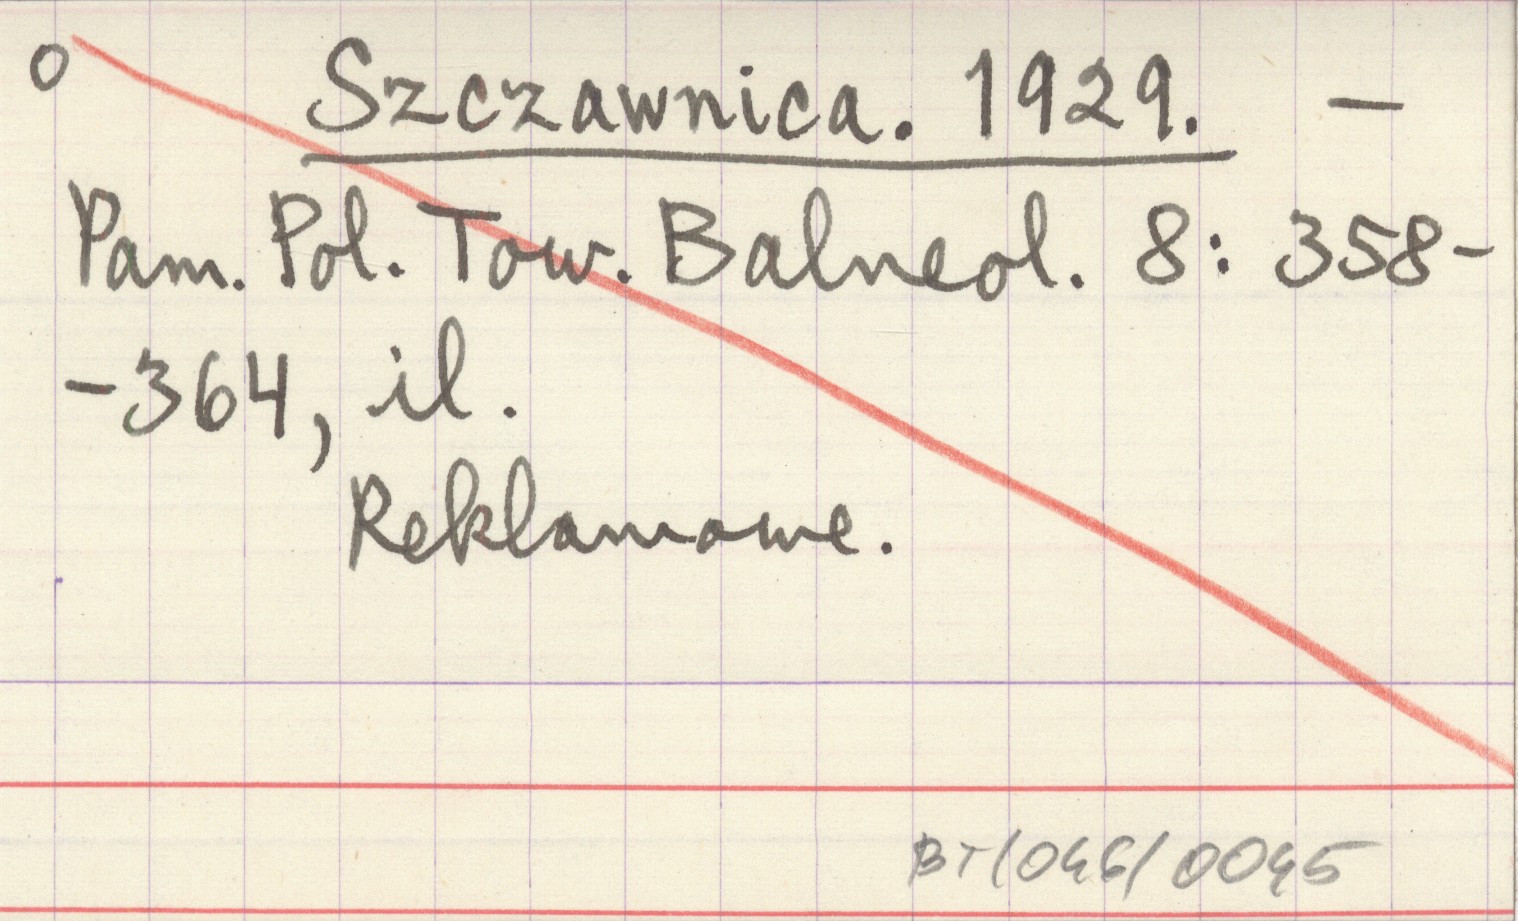 o Szczawnica. 1929. —
Pam. Pol. Tow. Balneol. 8: 358-
-364, il.
Reklamowe.
BT/046/0045